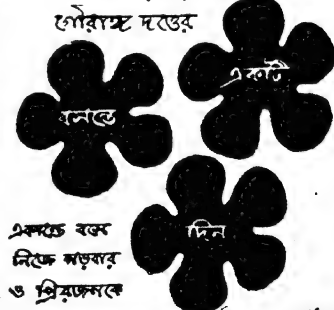 গৌরাঙ্গ দত্তের
একটি
বসন্তে
দিন
একান্তে বসে
নিজে পড়বার
ও প্রিয়জনকে